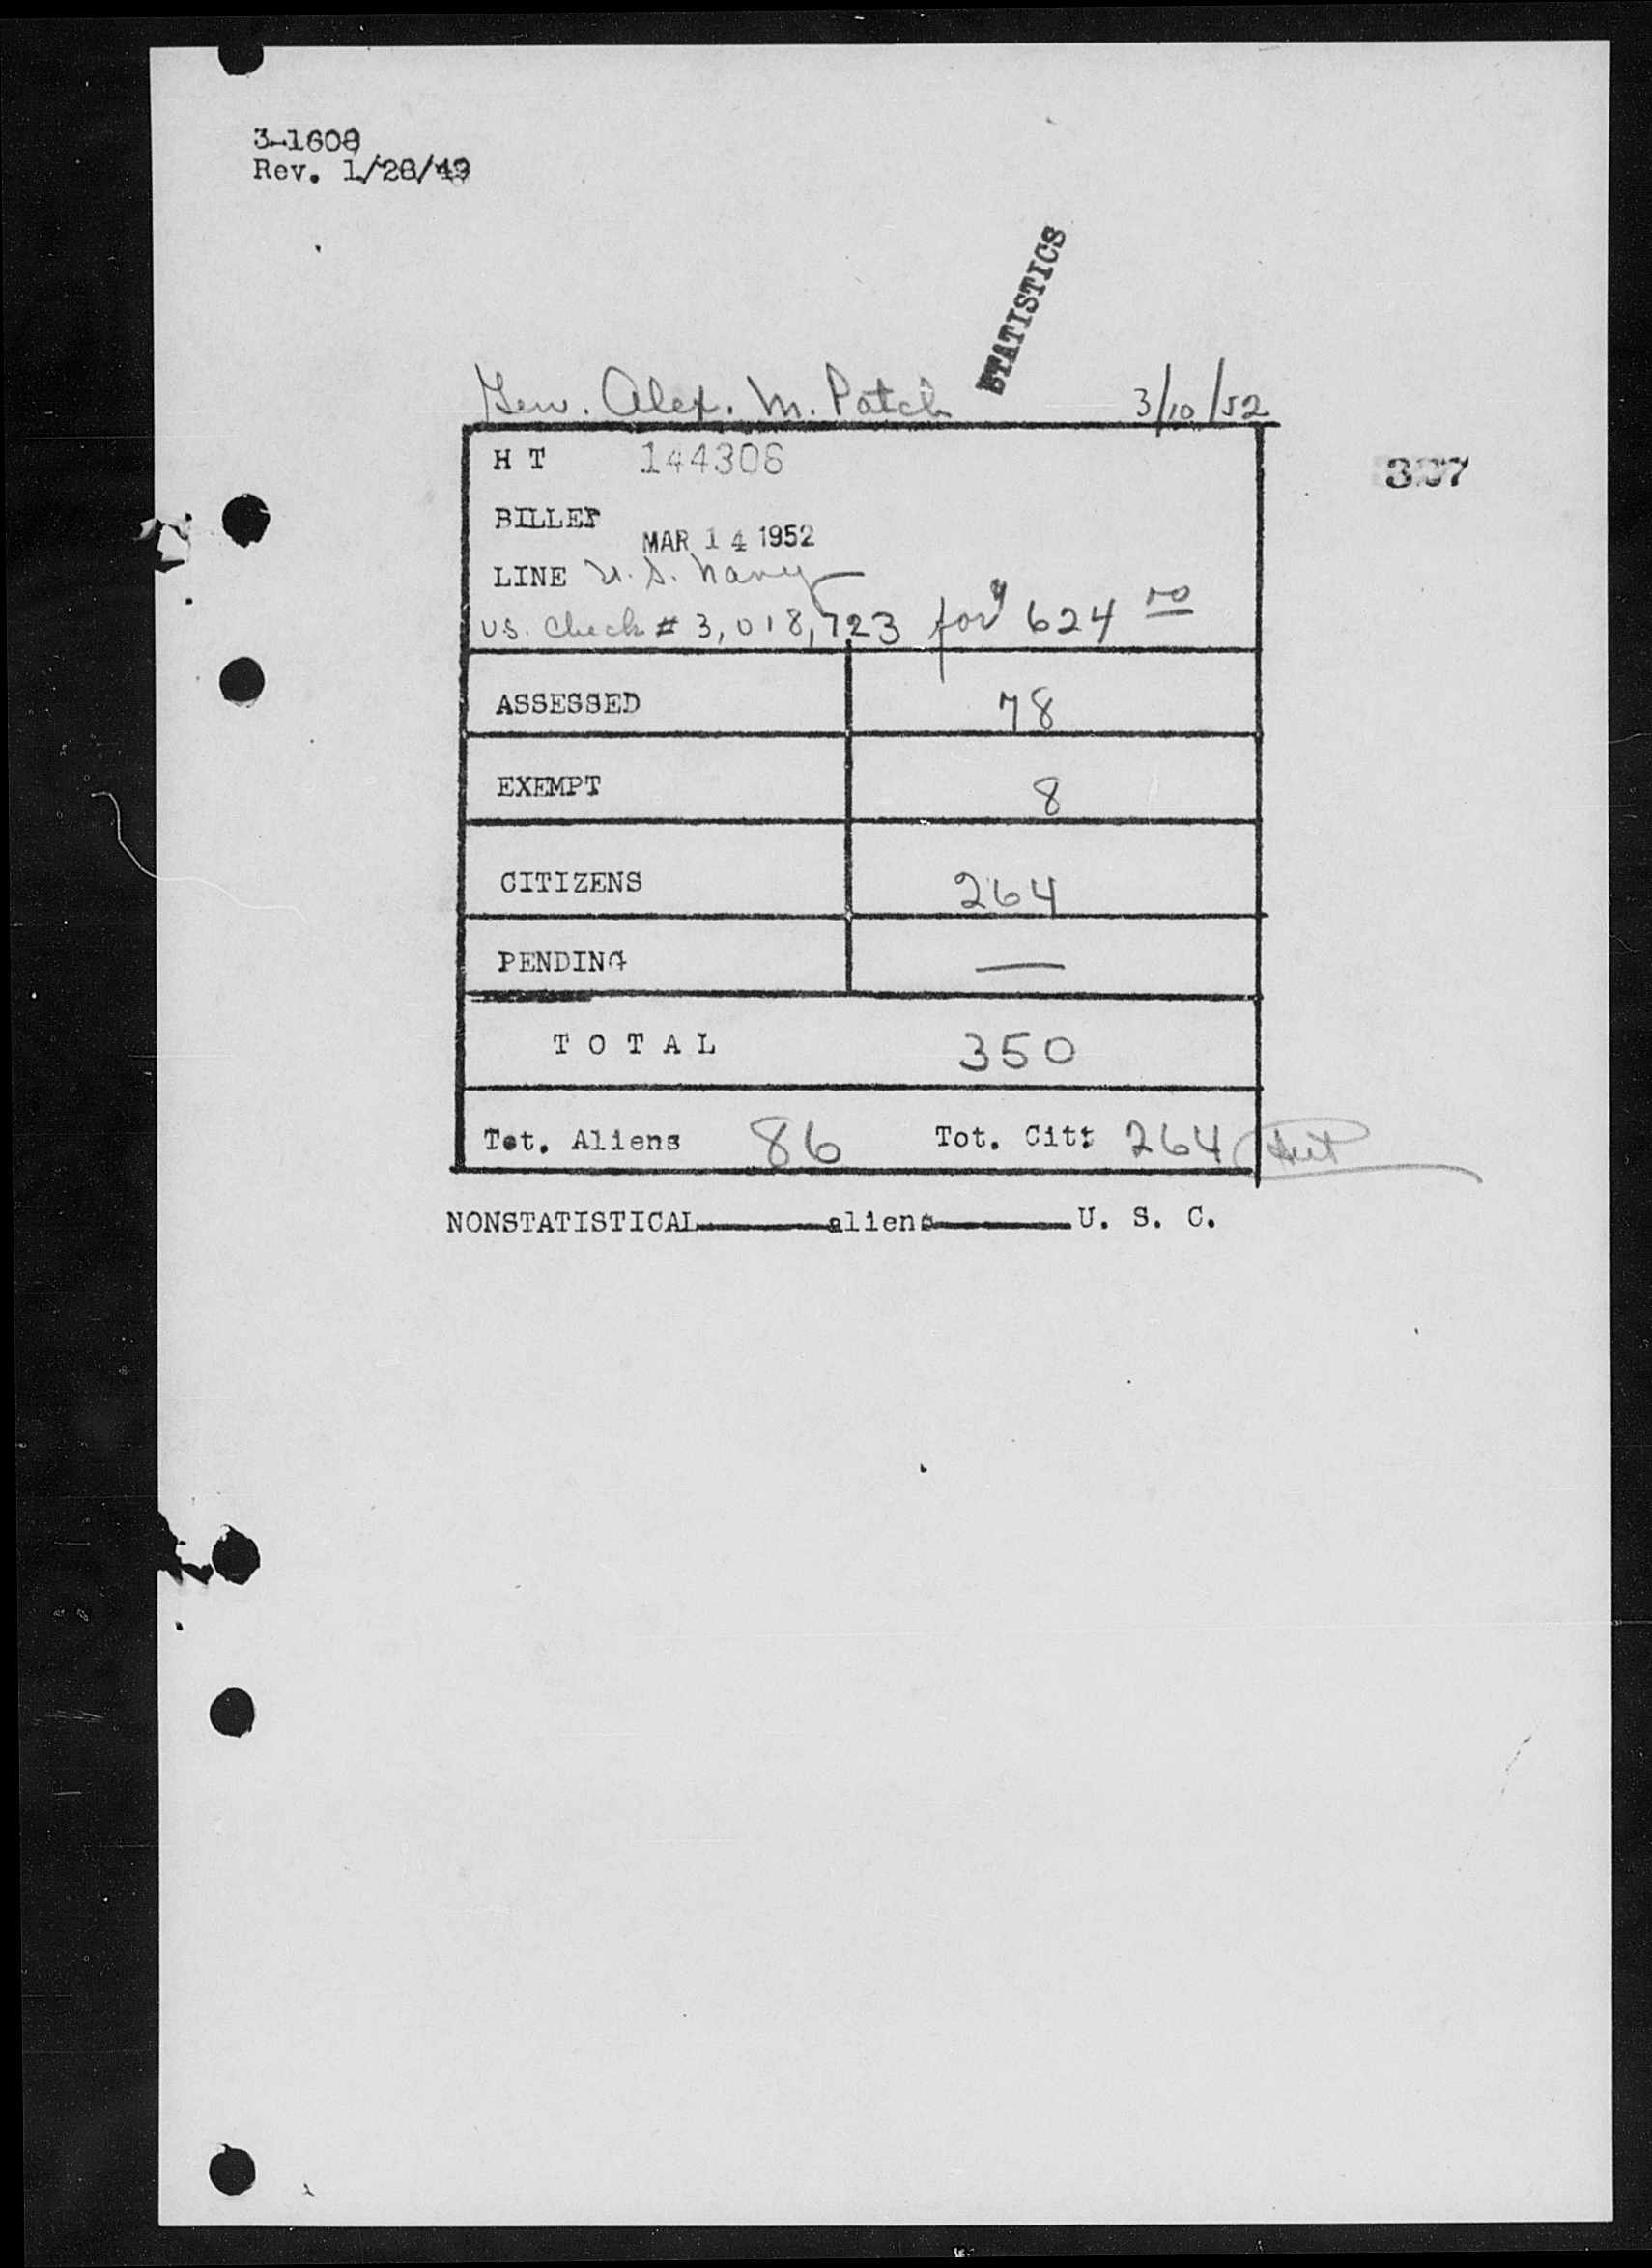 3-1608
Rev. 1/28/49
STATISTICS
Gen. Alex. M. Patch 3/10/52
H T 144306
307
BILLET
MAR 14 1952
LINE U.S. Navy
U.S. Check # 3,018,723 for $ 624 00
ASSESSED 78
EXEMPT 8
CITIZENS 264
PENDING —
T O T A L 350
Tot. Aliens 86 Tot. Cit: 264
NONSTATISTICAL aliens U. S. C.